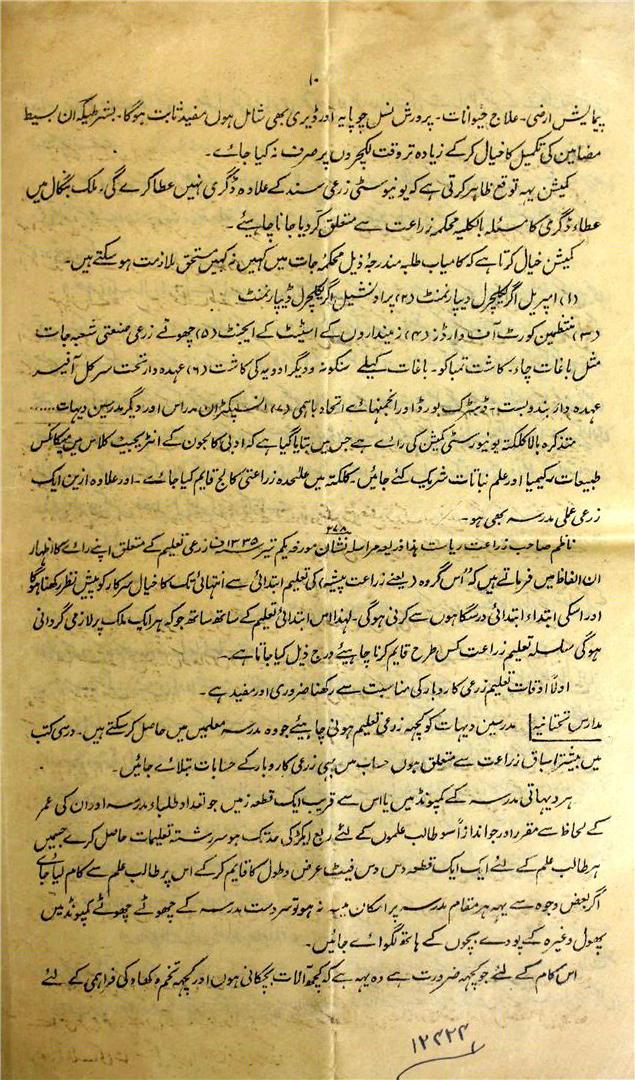 ۱۰
پیمایش ارضی۔ علاج حیوانات۔ پرورش نسل چوپایہ اور ڈیری بھی شامل ہوں مفید ثابت ہوگا۔ بشرطیکہ ان بسیط
مضامین کی تکمیل کا خیال کرکے زیادہ تر وقت لکچروں پر صرف نہ کیا جاے۔
کمیشن یہہ توقع ظاہر کرتی ہے کہ یونیورسٹی زرعی سند کے علاوہ ڈگری نہیں عطا کرے گی۔ ملک بنگال میں
عطاء ڈگری کا مسئلہ بالکلیہ محکمہ زراعت سے متعلق کردیا جانا چاہیئے۔
کمیشن خیال کرتا ہے کہ کامیاب طلبہ مندرجۂ ذیل محکمہ جات میں کہیں نہ کہیں مستحق ملازمت ہوسکتے ہیں۔
(۱) امپریل اگریکلچرل ڈیپارٹمنٹ (۲) پراونشیل اگریکلچرل ڈیپارٹمنٹ
(۳) منتظمین کورٹ آف وارڈز (۴) زمینداروں کے اسٹیٹ کے ایجنٹ (۵) چھوٹے زرعی صنعتی شعبہ جات
مثل باغات چاء۔ کاشت تمباکو۔ باغات کیلے سنکونہ و دیگر ادویہ کی کاشت (۶) عہدہ دار تحت سرکل آفیسر
عہدہ دار بندوبست۔ ڈسٹرکٹ بورڈ اور انجمنہائے اتحاد باہمی (۷) انسپکٹران مدارس اور دیگر مدرسین دیہات......
متذکرہ بالا کلکتہ یونیورسٹی کمیشن کی راے ہے جس میں بتایا گیا ہے کہ ادبی کالجوں کے انٹرمیجیٹ کلاس میں میکانکس
طبیعات۔ کیمیا اور علم نباتات شریک کئے جائیں۔ کلکتہ میں علحدہ زراعتی کالج قایم کیا جاے۔ اور علاوہ ازین ایک
زرعی علی مدرسہ بھی ہو۔
ناظم صاحب زراعت ریاست ہذا ذریعہ مراسلہ نشان ۲۷۸ مورخہ یکم تیر ۱۳۳۵ف زرعی تعلیم کے متعلق اپنے راے کا اظہار
ان الفاظ میں فرماتے ہیں کہ "اُس گروہ (یعنے زراعت پیشہ) کی تعلیم ابتدائی سے انتہائی تک کا خیال سرکار کو پیش نظر رکھنا ہوگا
اور اسکی ابتداء ابتدائی درسگاہوں سے کرنی ہوگی۔ لہذا اس ابتدائی تعلیم کے ساتھ ساتھ جو کہ ہر ایک ملک پر لازمی گردانی
ہوگی سلسلہ تعلیم زراعت کس طرح قایم کرنا چاہیئے درج ذیل کیا جاتا ہے۔
اولاً اوقات تعلیم زرعی کاروبار کی مناسبت سے رکھنا ضروری اور مفید ہے۔
مدارس تحتانیہ مدرسین دیہات کو کچھہ زرعی تعلیم ہونی چاہیئے جو وہ مدرسہ معلمین میں حاصل کرسکتے ہیں۔ درسی کتب
میں بیشتر اسباق زراعت سے متعلق ہوں حساب میں بھی زرعی کاروبار کے حسابات بتلاے جائیں۔
ہر دیہاتی مدرسہ کے کمپونڈ میں یا اس سے قریب ایک قطعہ زمین جو تعداد طلباء مدرسہ اور ان کی عمر
کے لحاظ سے مقرر اور جو اندازاً سو طالب علموں کے لئے ربع ایکڑ کی حد تک ہو سررشتہ تعلیمات حاصل کرے جسمیں
ہر طالب علم کے لئے ایک ایک قطعہ دس دس فیٹ عرض و طول کا قایم کرکے اس پر طالب علم سے کام لیا جاے
اگر بعض وجوہ سے یہہ ہر مقام مدرسہ پر امکان میں نہ ہو تو سردست مدرسہ کے چھوٹے چھوٹے کمپونڈ میں
پھول وغیرہ کے پودے بچوں کے ہاتھہ لگواے جائیں۔
اس کام کے لئے جو کچھہ ضرورت ہے وہ یہہ ہے کہ کچھہ آلات بچکانی ہوں اور کچھہ تخم و کھاد کی فراہمی کے لئے